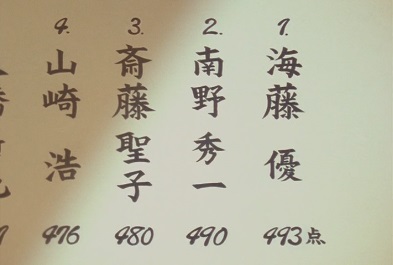 1. 海藤 優 493点
2. 南野 秀一 490
3. 斎藤 聖子 480
4. 山崎 浩 476